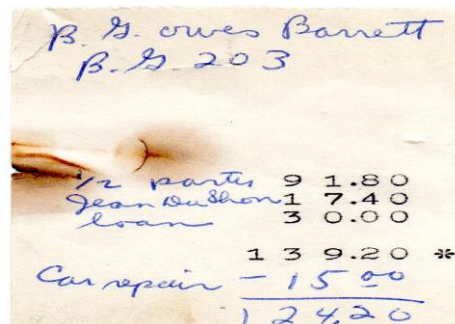 B. G. owes Barrett
B. G. 203
1/2 parts 91.80
Jean DuShon 17.40
loan 30.00
139.20 *
Car repair - 15 00
124.20